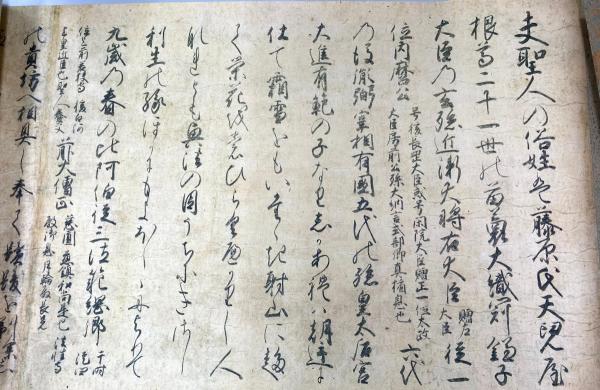 夫聖人の俗姓は藤原氏天児屋
根尊二十一世の苗裔大織冠鎌子
大臣の玄孫近衛大将右大臣贈左大臣従一
位内麿公号後長岡大臣或号閑院大臣贈正一位太政大臣房前公孫大納言式部卿真楯息也六代
の後胤弼宰相有國五代の孫皇太后宮
大進有範の子なりしかあれは朝廷に
仕て霜雪をもいたゝき射山に趨
て栄花をもひらくへかりし人
なれとも興法の因うちにきさし
利生の縁ほかにもよほしゝによりて
九歳の春の比阿伯従三位範綱卿于時従四
位上前若狭守後白河上皇近臣也聖人養父前大僧正慈圓慈鎮和尚是也法性寺殿御息月輪殿長兄
の貴坊へ相具し奉て鬢髪を